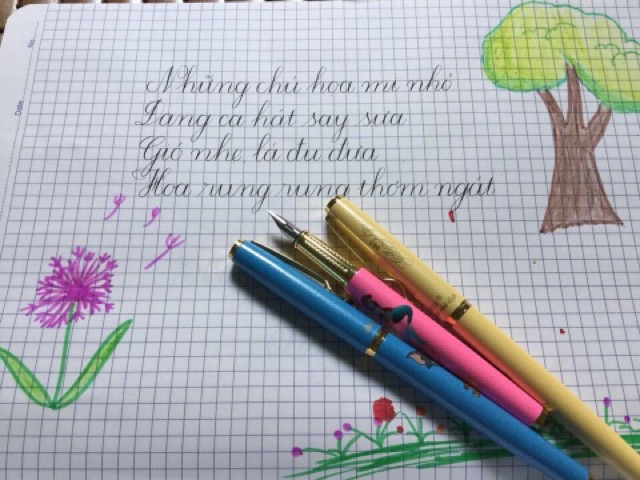 No.
Date
Những chú hoạ mi nhỏ
Đang ca hát say sưa
Gió nhẹ lá đu đưa
Hoa rung rung thơm ngát